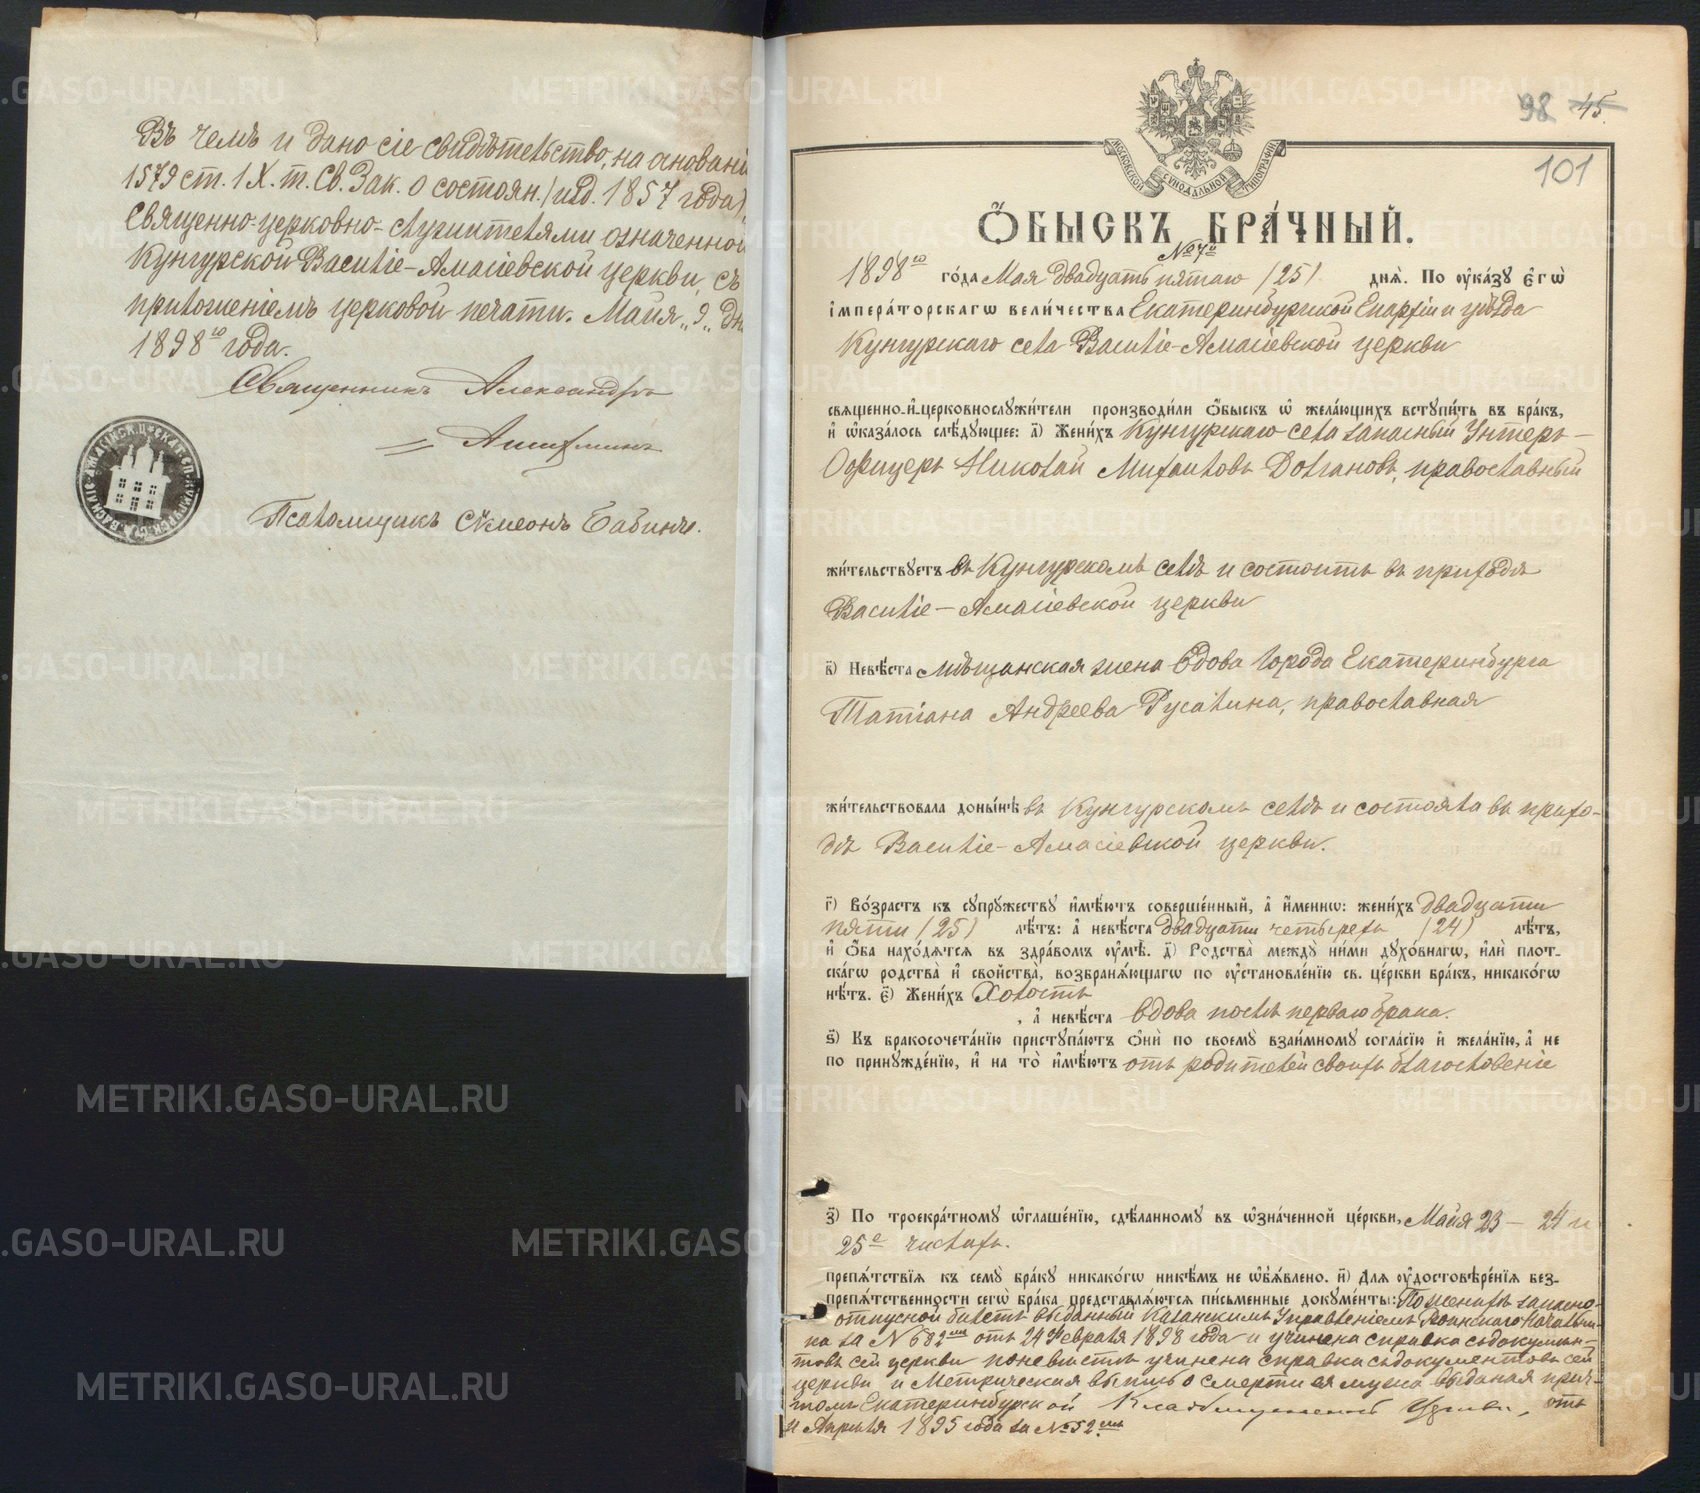 Въ чемъ и дано сіе свидѣтельство, на основані
1579 ст. IX. т. Св. Зак. о состоян. (изд. 1857 года),
Священно-церковно-служителями означенной
Кунгурской Василіе-Амасіевской церкви, съ
приложеніемъ церковой печати. Маія „9„ дн
1898го года.
Священникъ Александръ
Ашихминъ
Псаломщикъ Сѵмеонъ Бабинъ.
98 45.
101
МОСКОВСКОЙ СѴНОДАЛЬНОЙ ТИПОГРАФІИ
ОБЫСКЪ БРАЧНЫЙ.
№ 7й
1898го года Мая двадцать пятаго (25) дня. По указу єгѡ
императорскагѡ величества Екатеринбургской Епархіи и уѣзда
Кунгурскаго села Василіе-Амасіевской церкви
священно-и-церковнослужители производили обыскъ ѡ желающихъ вступить въ бракъ,
и ѡказалось слѣдующее: а) Женихъ Кунгурскаго села запасный Унтеръ-
Офицеръ Николай Михаиловъ Долгановъ, православный
жительствуетъ въ Кунгурскомъ селѣ и состоитъ въ приходѣ
Василіе-Амасіевской церкви
в) Невѣста мѣщанская жена вдова города Екатеринбурга
Татіана Андреева Русалина, православная
жительствовала донынѣ въ Кунгурскомъ селѣ и состояла въ прихо-
дѣ Василіе-Амасіевской церкви.
г) Возрастъ къ супружеству имѣютъ совершенный, а именнѡ: женихъ двадцати
пяти (25) лѣтъ: а невѣста двадцати четырехъ (24) лѣтъ,
и оба находятся въ здравомъ умѣ. д) Родства между ними духовнагѡ, или плот-
скагѡ родства и свойства, возбраняющагѡ по установленію св. церкви бракъ, никакогѡ
нѣтъ. є) Женихъ Холостъ
, а невѣста вдова послѣ перваго брака.
ѕ) Къ бракосочетанію приступаютъ они по своему взаимному согласію и желанію, а не
по принужденію, и на то имѣютъ отъ родителей своихъ благословеніе
з) По троекратному ѡглашенію, сдѣланному въ ѡзначенной церкви, Маія 23 - 24 и
25е числахъ.
препятствія къ сему браку никакогѡ никѣмъ не объявлено. и) Для удостовѣренія без-
препятственности сегѡ брака представляются письменные документы: По женихѣ запасно-
отпускной билетъ выданный Казанскимъ Управленіемъ Воинскаго Начальни-
ка за № 682мъ отъ 24 Февраля 1898 года и учинена справка съ докумен-
товъ сей церкви по невѣстѣ учинена справка съ документовъ сей
церкви и Метрическая выпись о смерти ея мужа выданая прич-
томъ Екатеринбурской Кладбищенской Церкви, отъ
Апрѣля 1895 года за № 52мъ